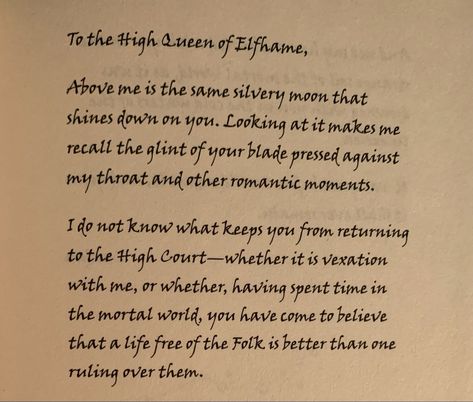 To the High Queen of Elfhame,
Above me is the same silvery moon that
shines down on you. Looking at it makes me
recall the glint of your blade pressed against
my throat and other romantic moments.
I do not know what keeps you from returning
to the High Court—whether it is vexation
with me, or whether, having spent time in
the mortal world, you have come to believe
that a life free of the Folk is better than one
ruling over them.